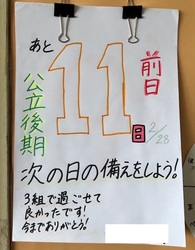 あと
11日
"前日"
2/28
公立後期
次の日の備えをしよう!
3組で過ごせて
良かったです!
今までありがとう!